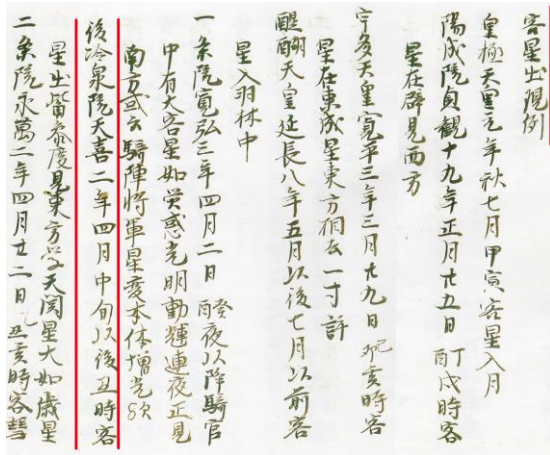 客星出現例
皇極天皇元年秋七月甲寅客星入月
陽成院貞観十九年正月廿五日丁酉戌時客
星在辟見西方
宇多天皇寛平三年三月廿九日己卯亥時客
星在東咸星東方相去一寸許
醍醐天皇延長八年五月以後七月以前客
星入羽林中
一条院寛弘三年四月二日癸酉夜以降騎官
中有大客星如熒惑光明動輝連夜正見
南方或云騎陣将軍星変本体増光歟
後冷泉院天喜二年四月中旬以後丑時客
星出觜参度見東方孛天関星大如歳星
二条院永万二年四月廿二日乙丑亥時客彗